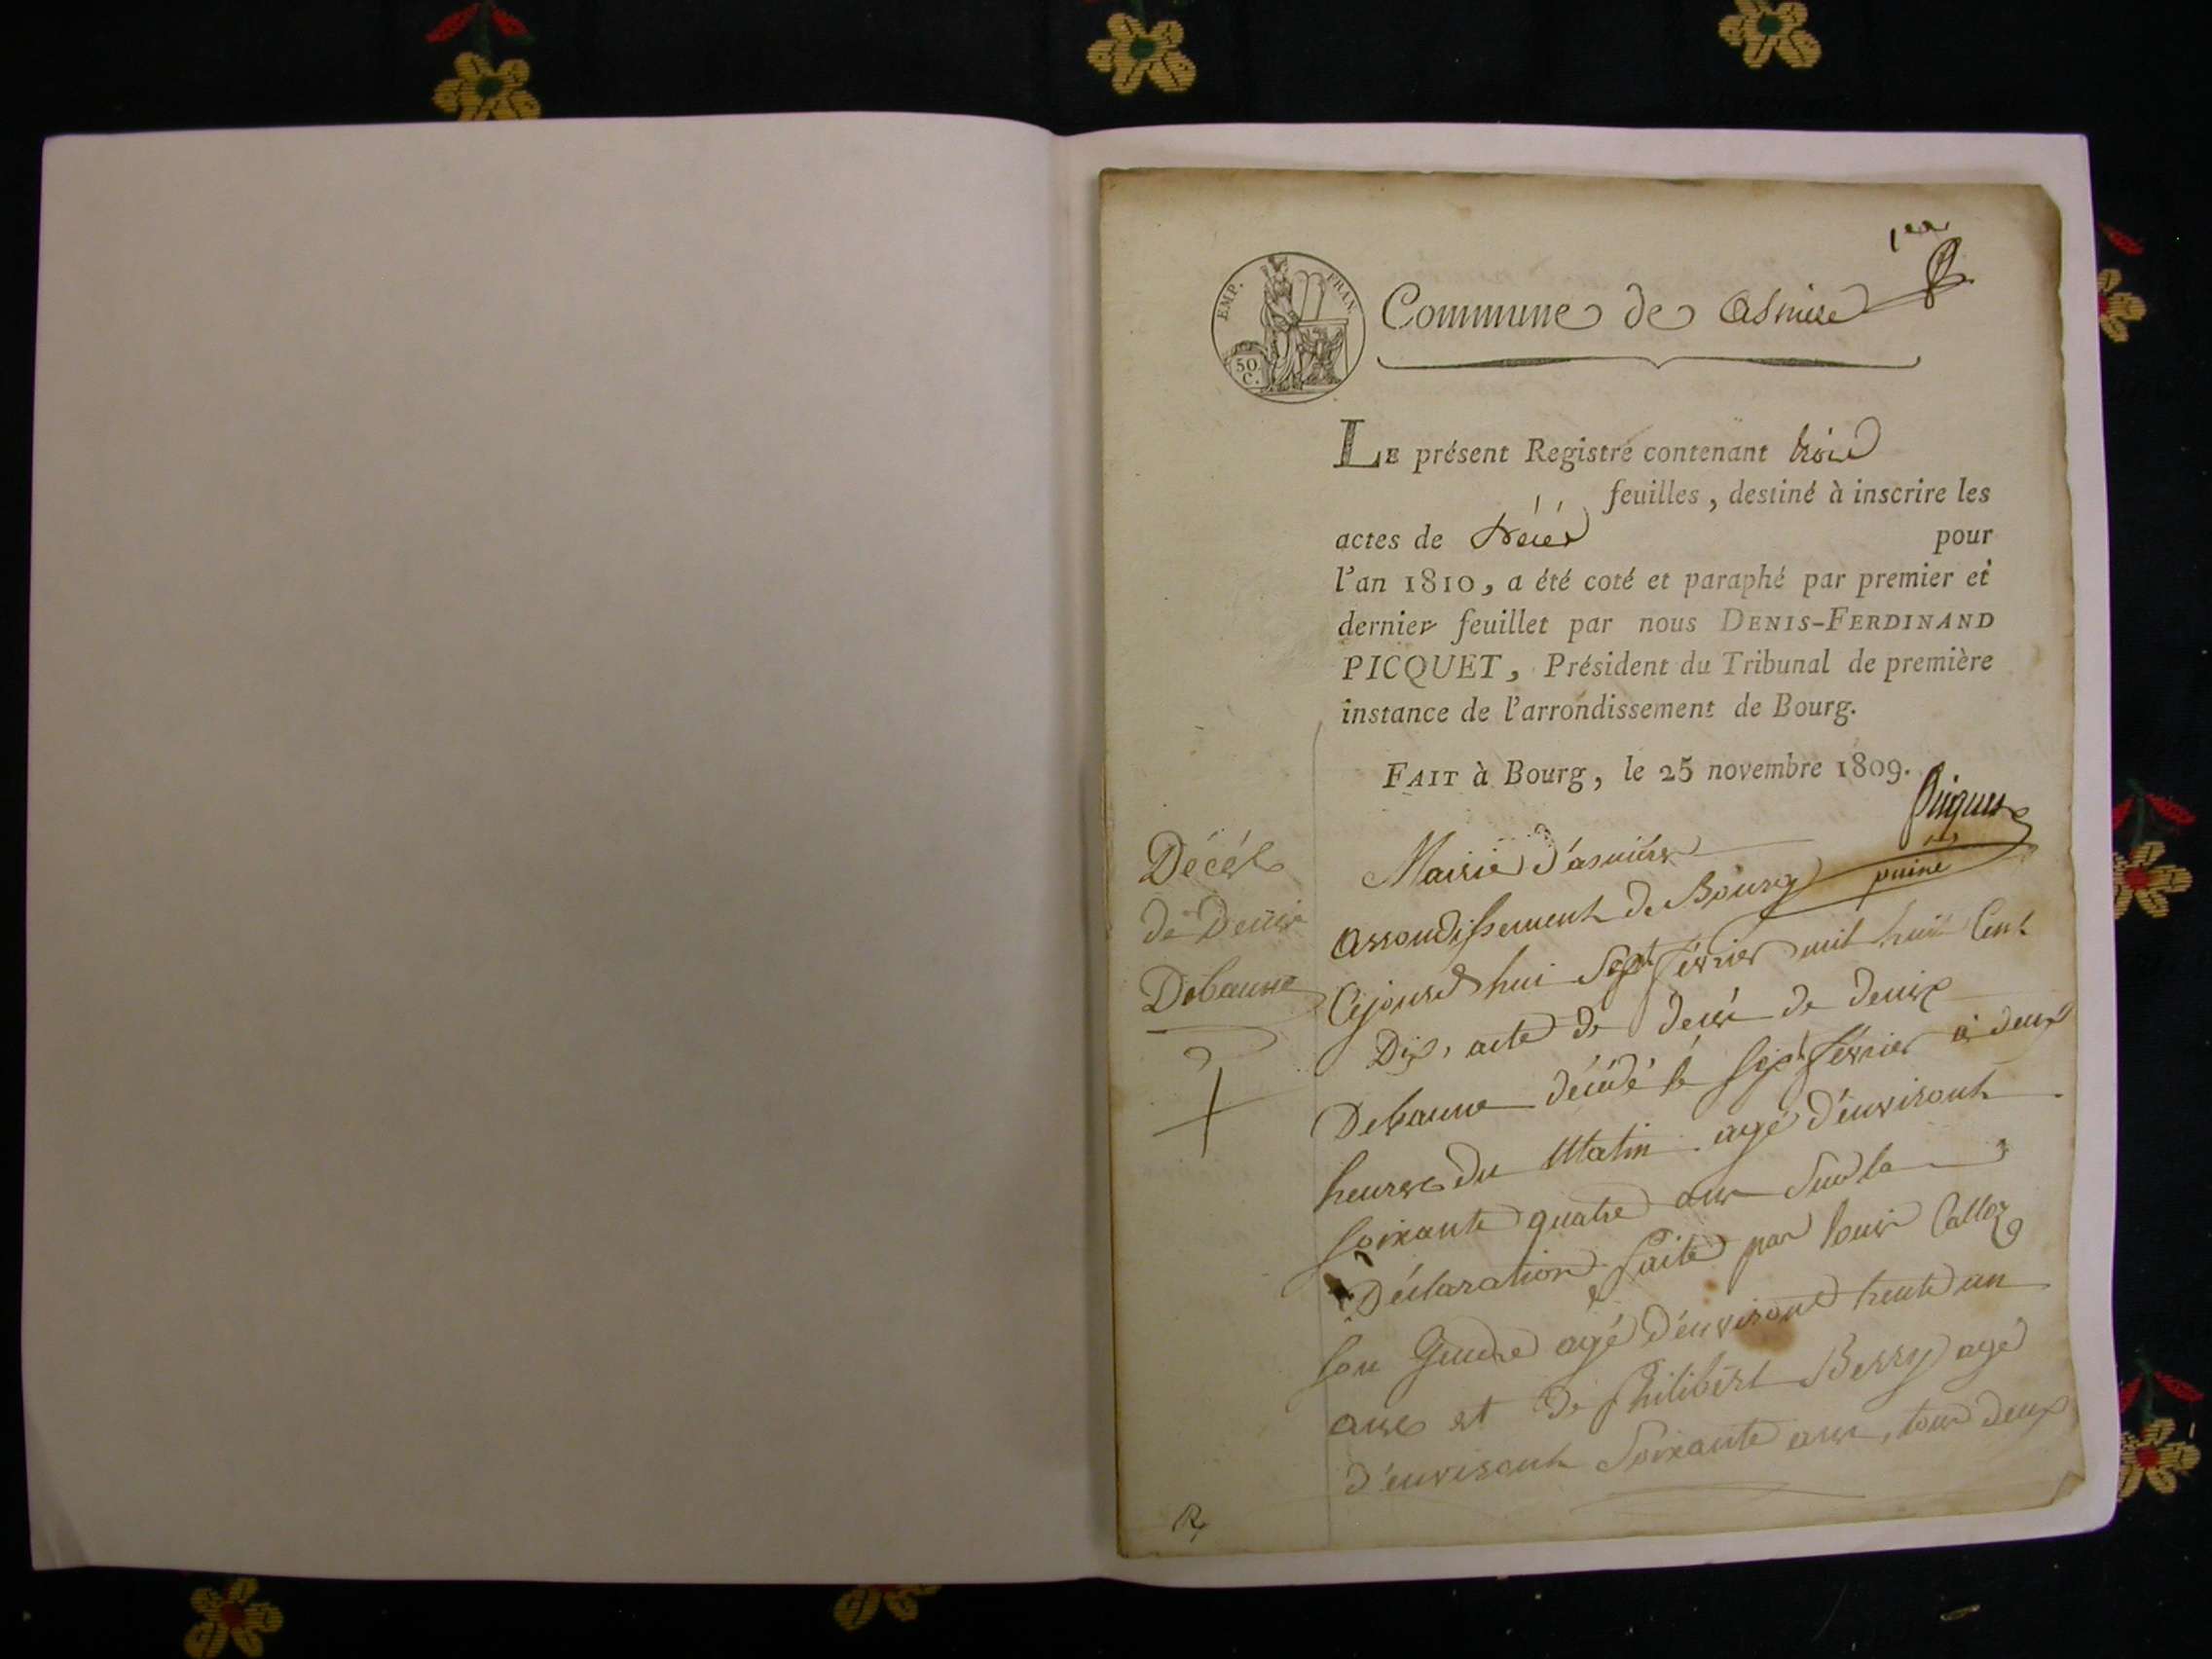 1er
EMP. FRAN.
50
C.
Commune de Asniere
LE présent Registre contenant trois
feuilles, destiné à inscrire les
actes de Décès pour
l'an 1810, a été coté et paraphé par premier et
dernier feuillet par nous DENIS-FERDINAND
PICQUET, Président du Tribunal de première
instance de l'arrondissement de Bourg.
FAIT à Bourg, le 25 novembre 1809.
Picquet
Décès
de Denis
Debaune
Mairie d'asnières
arrondissement de Bourg
Cejourd'hui Sept février mil huit Cent
Dix, acte de decès de denis
Debaune décédé le sept février à deux
heures du Matin agé d'environt
soixante quatre ans Sur la
Déclaration faite par louis Calloz
son Gendre agé d'environt trente un
ans et de philibert Berry agé
d'environt Soixante ans, tous deux